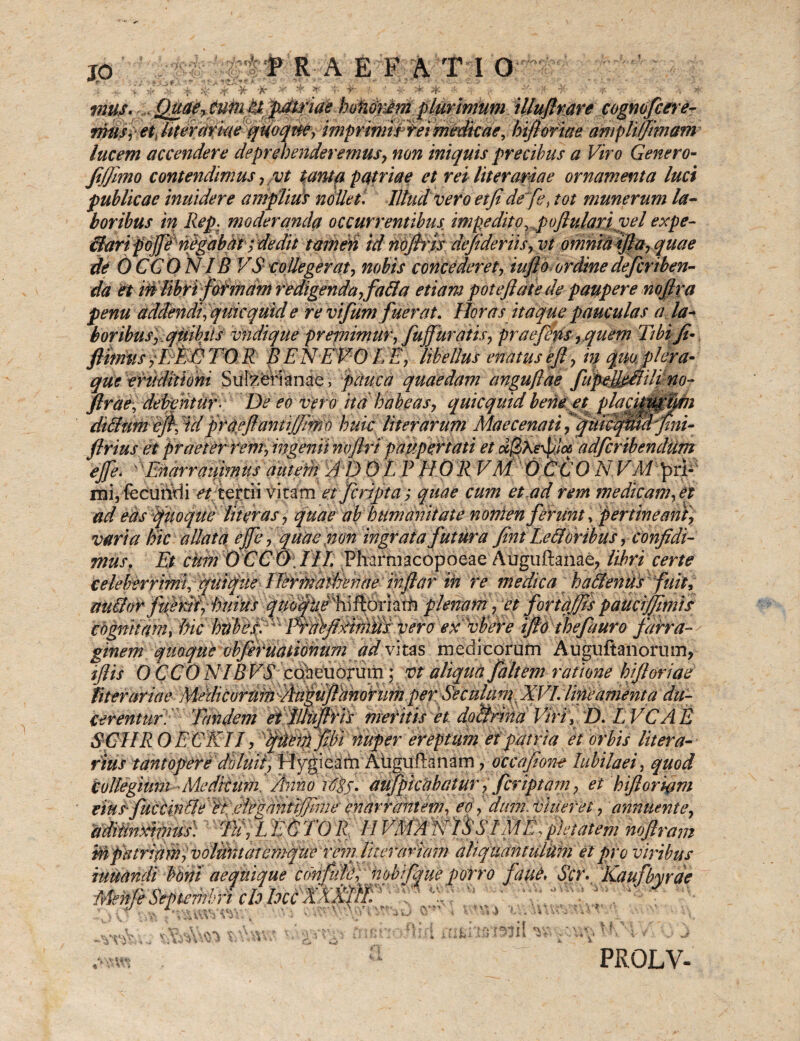 10 PRAEFATIO
mus. Quae, cum ut patriae honorem plurimum illuſtrare cognoſcere-
mus, et literariae quoque, imprimis rei medicae, hiſtoriae ampliſſimam
lucem accendere deprehenderemus, non iniquis precibus a Viro Genero-
ſiſſimo contendimus, vt tanta patriae et rei literariae ornamenta luci
publicae inuidere amplius nollet. Illud vero etſi de ſe, tot munerum la-
boribus in Rep. moderanda occurrentibus impedito, poſtulari vel expe-
ctari poſſe negabat; dedit tamen id noſtris deſideriis, vt omnia iſta, quae
de OCCONIBVS collegerat, nobis concederet, iuſto ordine deſcriben-
da et in libri formam redigenda, facta etiam poteſtate de paupere noſtra
penu addendi, quicquid e re viſum fuerat. Horas itaque pauculas a la-
boribus, quibus vndique premimur, ſuffuratis, praeſens, quem Tibi ſi-
ſtimus, LECTOR BENEVOLE, libellus enatus eſt, in quo plera-
que eruditioni Sulzerianae, pauca quaedam anguſtae ſupellectili no-
ſtrae, debentur. De eo vero ita habeas, quicquid bene et placiturum
dictum eſt, id praeſtantiſſimo huic literarum Maecenati, quicquid ſini-
ſtrius et praeter rem, ingenii noſtri paupertati et ἀβλεψίᾳ adſcribendum
eſſe. Enarrauimus autem ADOLPHORVM OCCONVM pri-
mi, ſecundi et tertii vitam et ſcripta; quae cum et ad rem medicam, et
ad eas quoque literas, quae ab humanitate nomen ferunt, pertineant,
varia hic allata eſſe, quae non ingrata futura ſint Lectoribus, confidi-
mus. Et cum OCCO. III. Pharmacopoeae Auguſtanae, libri certe
celeberrimi, quique Hermathenae inſtar in re medica hactenus fuit,
auctor fuerit, huius quoque hiſtoriam plenam, et fortaſſis pauciſſimis
cognitam, hic habes. Praefiximus vero ex vbere iſto theſauro farra-
ginem quoque obſeruationum ad vitas medicorum Auguſtanorum,
iſtis OCCONIBVS coaeuorum; vt aliqua ſaltem ratione hiſtoriae
literariae Medicorum Auguſtanorum per Seculum XVI. lineamenta du-
cerentur. Tandem et Illuſtris meritis et doctrina Viri, D. LVCAE
SCHROECKII, quem ſibi nuper ereptum et patria et orbis litera-
rius tantopere doluit, Hygieam Auguſtanam, occaſione Iubilaei, quod
Collegium Medicum Anno 1685. auſpicabatur, ſcriptam, et hiſtoriam
eius ſuccincte et elegantiſſime enarrantem, eo, dum viueret, annuente,
adiunximus. Tu, LECTOR HVMANISSIME, pietatem noſtram
in patriam, voluntatemque rem literariam aliquantulum et pro viribus
iuuandi boni aequique conſule, nobiſque porro faue. Scr. Kaufbyrae
Menſe Septembri cIↃ IↃcc XXXIII.
PROLV-